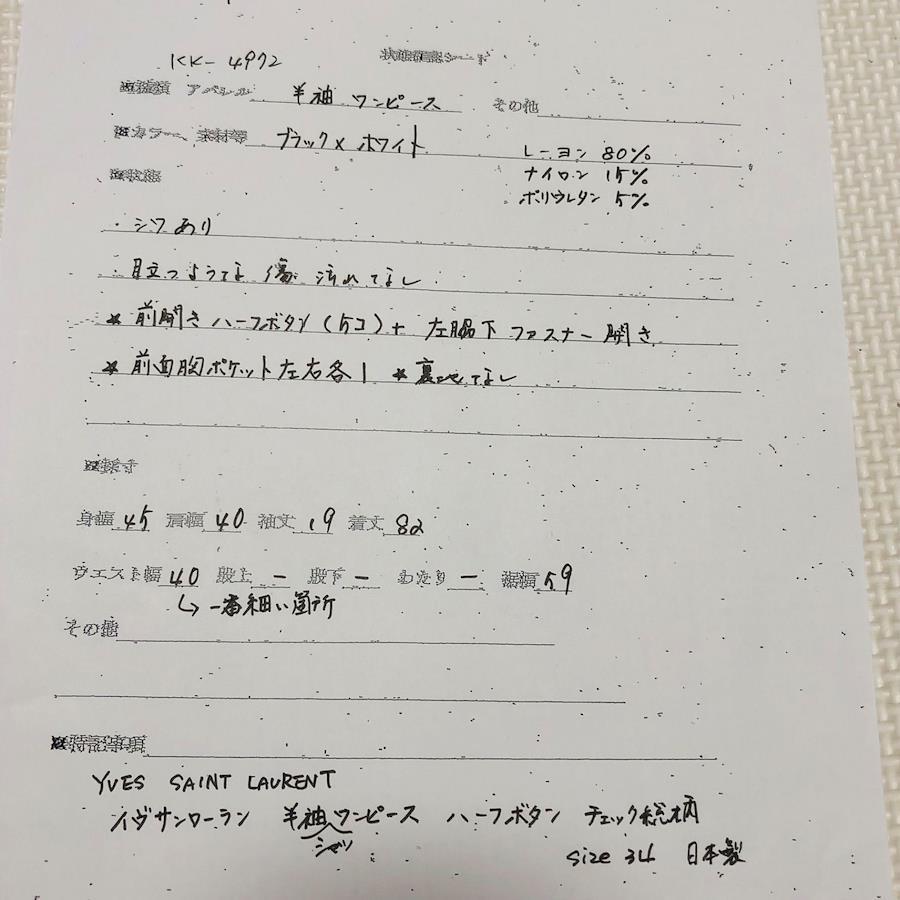 KK-4972 状態確認シート
※種類 アパレル 半袖 ワンピース その他
※カラー、素材等 ブラック×ホワイト レーヨン 80%
ナイロン 15%
ポリウレタン 5%
※状態
・シワあり
・目立つような傷 汚れなし
★前開きハーフボタン(5コ)+ 左脇下ファスナー開き
★前面胸ポケット左右各1 ★裏地なし
※採寸
身幅 45 肩幅 40 袖丈 19 着丈 82
ウエスト幅 40 股上 - 股下 - わたり - 裾幅 59
↳一番細い箇所
その他
※特記事項
YVES SAINT LAURENT
イヴサンローラン 半袖ワンピース ハーフボタン チェック総柄
シャツ
size 34 日本製